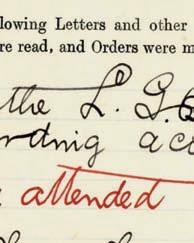 llowing Letters and other
re read, and Orders were m
the L. G.
rding acc
attended